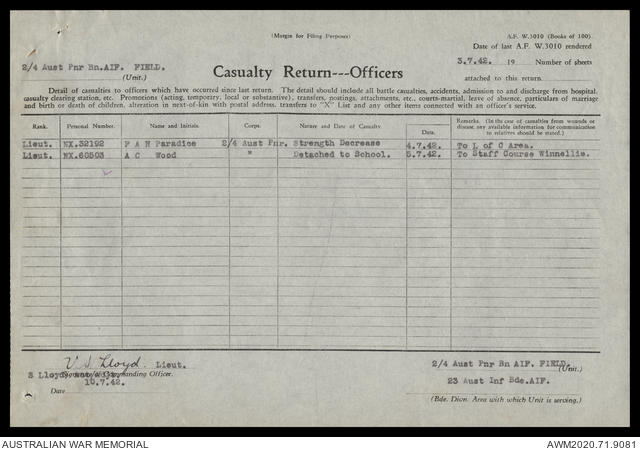 (Margin for Filing Purposes)
A.F. W.3010 (Books of 100)
Date of last A.F. W.3010 rendered
3.7.42. 19 Number of sheets
attached to this return.
2/4 Aust Pnr Bn.AIF. FIELD.
(Unit.)
Casualty Return---Officers
Detail of casualties to officers which have occurred since last return. The detail should include all battle casualties, accidents, admission to and discharge from hospital,
casualty clearing station, etc. Promotions (acting, temporary, local or substantive), transfers, postings, attachments, etc., courts-martial, leave of absence, particulars of marriage
and birth or death of children, alteration in next-of-kin with postal address, transfers to "X" List and any other items connected with an officer's service.
Rank. Personal Number. Name and Initials. Corps. Nature and Date of Casualty. Date. Remarks. (In the case of casualties from wounds or
disease any available information for communication
to relatives should be stated.)
Lieut. NX.32192 F A H Paradice 2/4 Aust Pnr. Strength Decrease 4.7.42. To L of C Area.
Lieut. NX.60503 A C Wood " Detached to School. 5.7.42. To Staff Course Winnellie.
V S Lloyd. Lieut.
S Lloyd
Commanding Officer.
10.7.42.
Date
2/4 Aust Pnr Bn AIF. FIELD.
(Unit.)
23 Aust Inf Bde.AIF.
(Bde. Divn. Area with which Unit is serving.)
AUSTRALIAN WAR MEMORIAL
AWM2020.71.9081